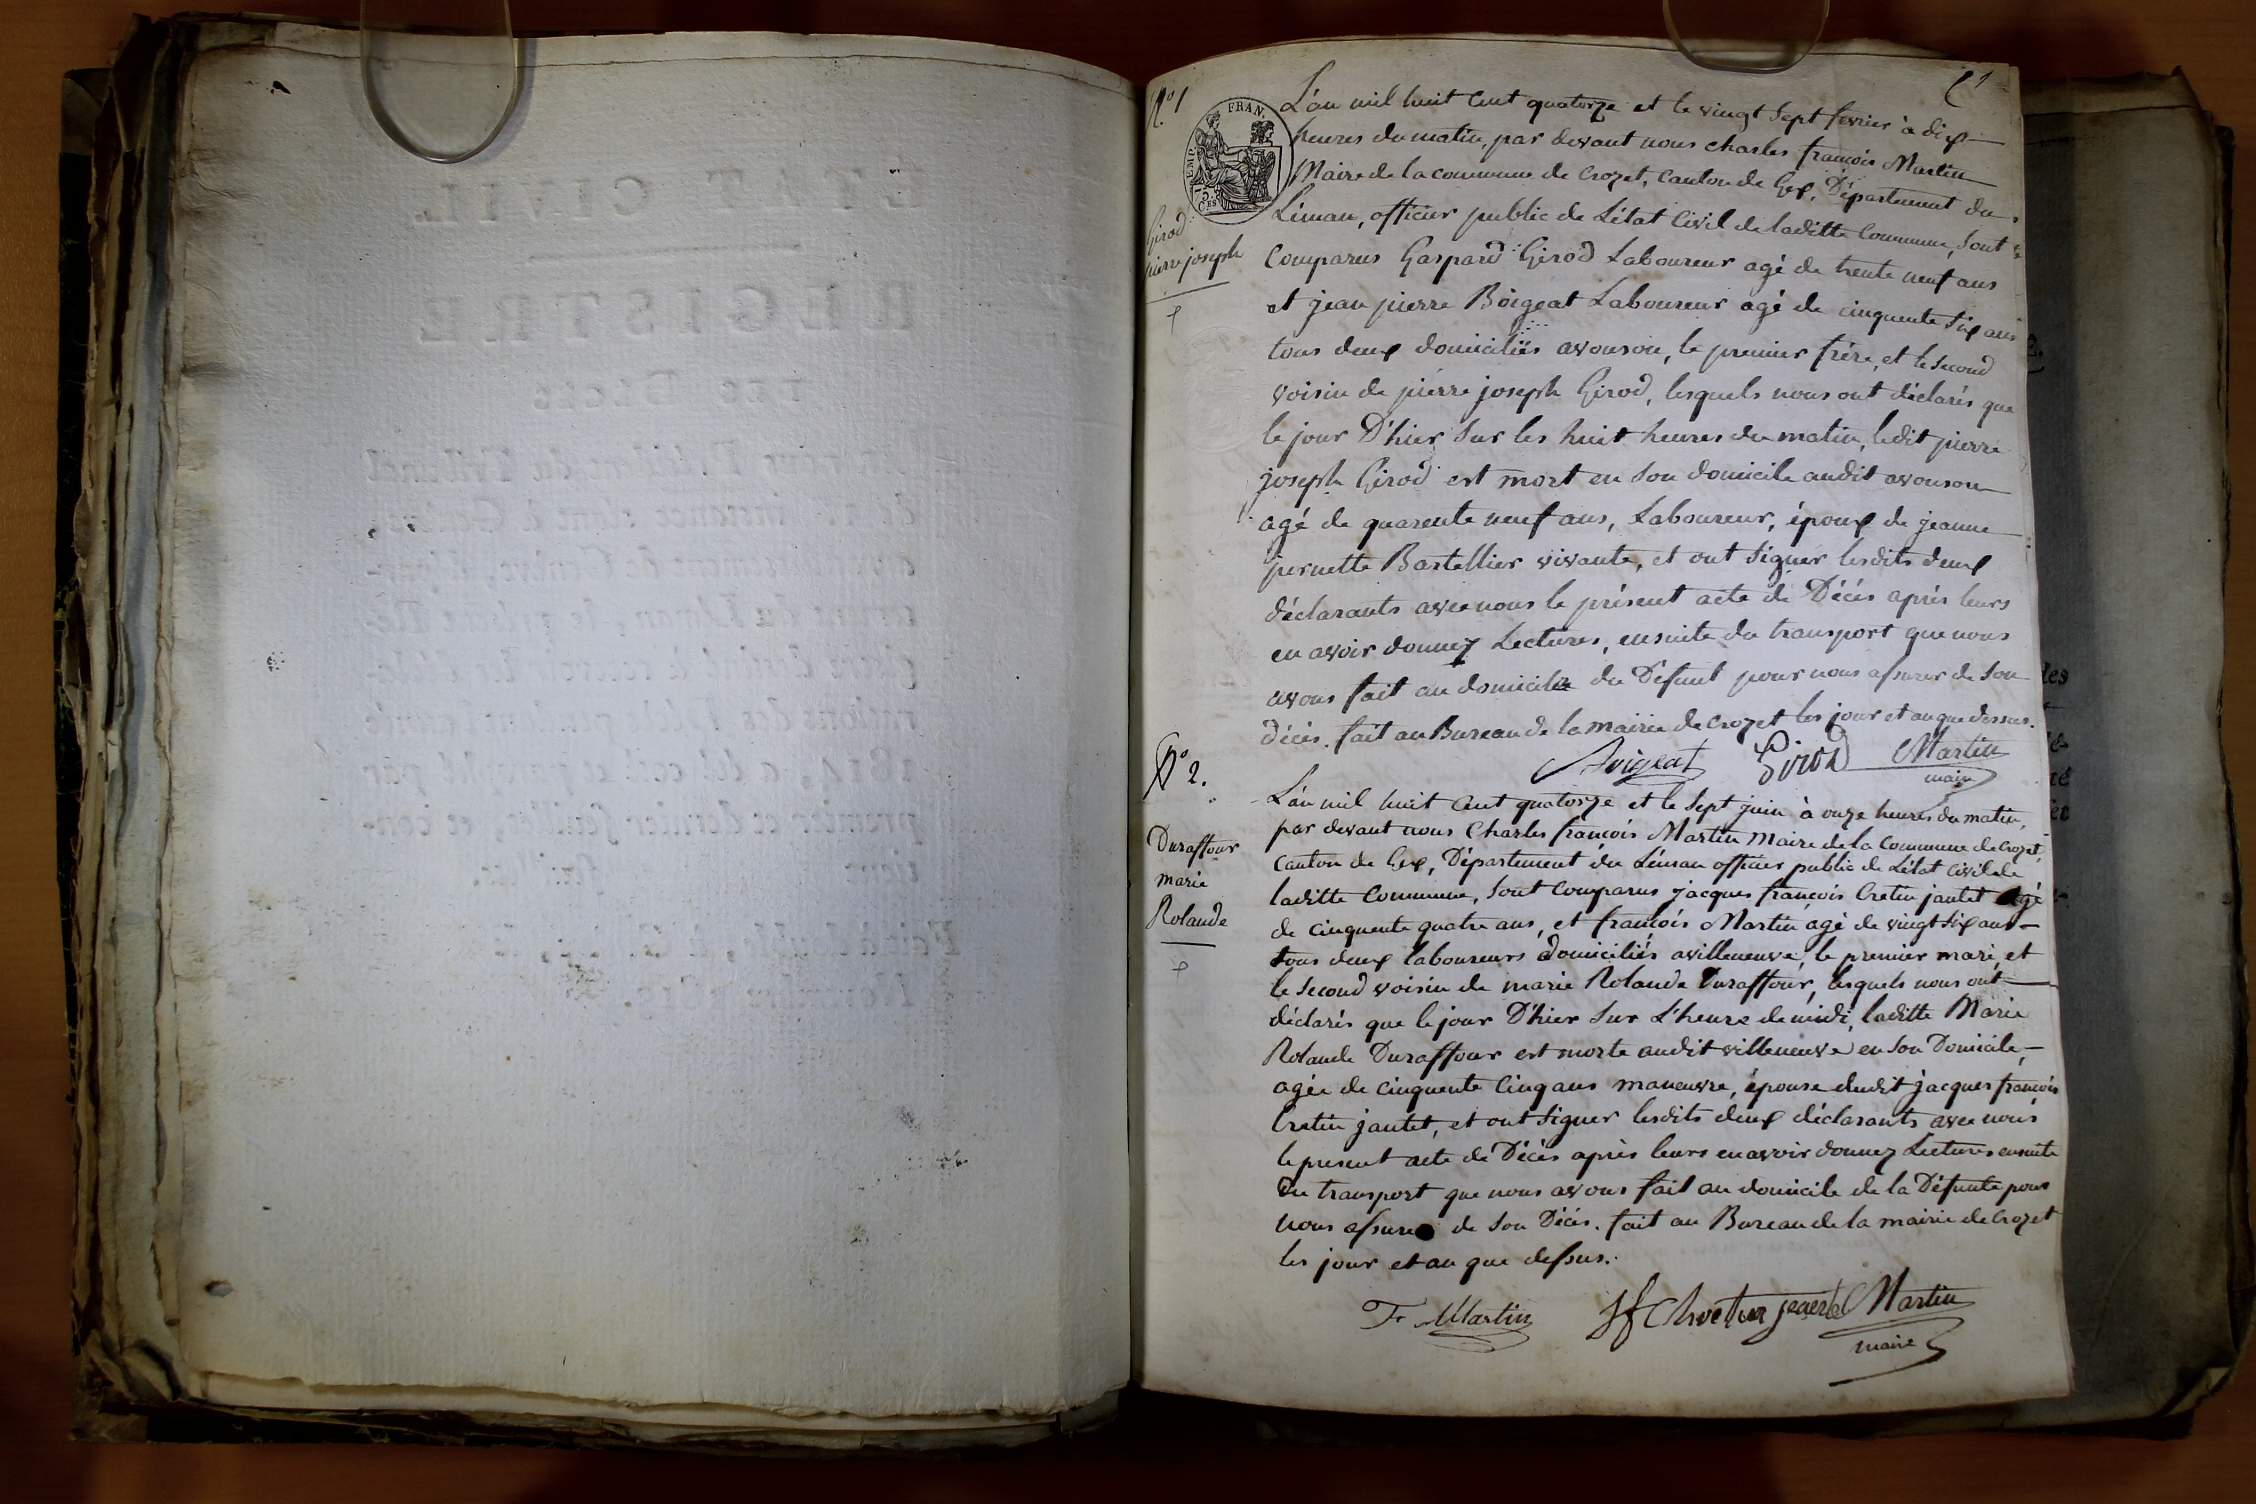 N.º 1
Girod
pierre joseph
EMP. FRAN.
L'an mil huit Cent quatorze et le vingt Sept fevrier à dix
heures du matin, par devant nous charles françois Martin
Maire de la commune de Crozet, Canton de Gex, Département du
Léman, officier public de L'état Civil de laditte Commune, Sont
Comparus Gaspard Girod Laboureur agé de trente neuf ans
et jean pierre Boigeat Laboureur agé de cinquente Six ans
tous deux domiciliés avouson, le premier frére, et le Second
voisin de pierre joseph Girod, lesquels nous ont déclarés que
le jour D'hier Sur les huit heures du matin, ledit pierre
joseph Girod est mort en Son domicile audit avouson
agé de quarente neuf ans, Laboureur, époux de jeanne
pernette Bastellier vivante, et ont Signer lesdits deux
déclarants avec nous le présent acte de Décés aprés leurs
en avoir donnez Lectures, ensuite du transport que nous
avons fait au domicile du Défunt pour nous assurer de Son
décés. fait au Bureau de la mairie de Crozet les jour et an que dessus.
Boigeat Girod Martin
maire
Nº 2.
Duraffour
marie
Rolande
L'an mil huit Cent quatorze et le Sept juin à onze heures du matin,
par devant nous Charles françois Martin Maire de la Commune de Crozet,
Canton de Gex, Département du Léman officier public de L'état Civil de
laditte Commune, Sont Comparus jacques françois Cretin jantet agé
de cinquente quatre ans, et françois Martin agé de vingt Six ans
tous deux laboureurs domiciliés avilleneuve, le premier mari, et
le Second voisin de marie Rolande Duraffour, lesquels nous ont
déclarés que le jour D'hier Sur L'heure de midi, laditte Marie
Rolande Duraffour est morte audit villeneuve en Son Domicile,
agée de cinquente Cinq ans maneuvre, épouse dudit jacques françois
Cretin jantet, et ont Signer lesdits deux déclarants avec nous
le present acte de Décés aprés leurs en avoir donnez Lectures ensuite
du transport que nous avons fait au domicile de la Défunte pour
nous assurer de Son Décés. fait au Bureau de la mairie de Crozet
les jour et an que dessus.
F. Martin Martin
maire